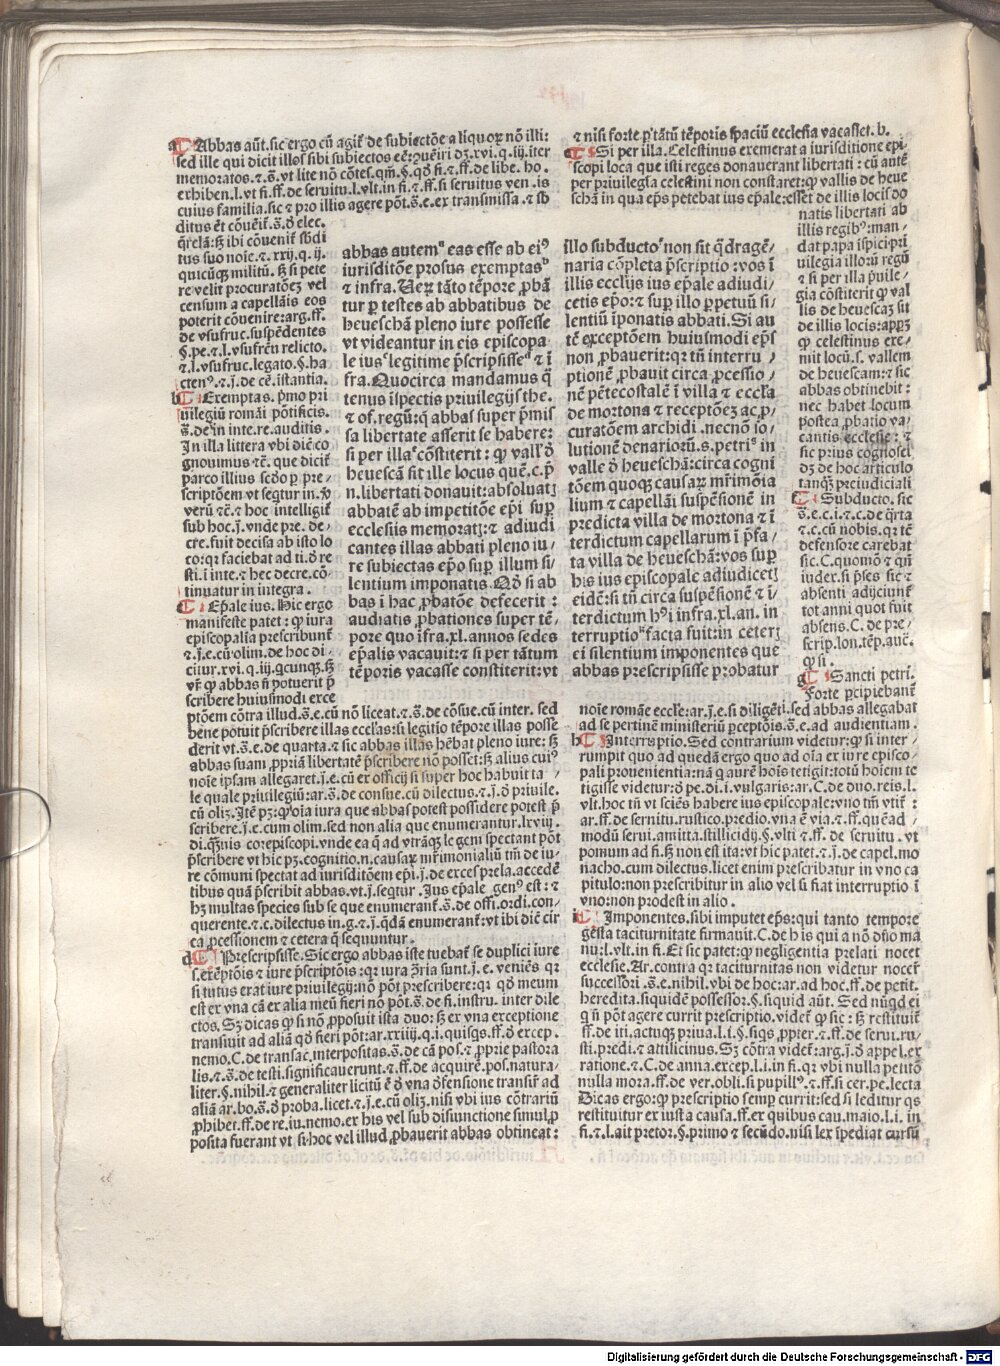 Abbas aūt. sic ergo cū agit̄ de subiectōe aliquoꝝ nō illi:
sed ille qui dicit illos sibi subiectos
memoratos. ⁊.s̄. vt lite nō cōtes. qm̄.§. ꝙ fi. ⁊.ff. de libe. ho.
exhiben. l. vt fi. ff. de seruitu. l. vlt. in fi. ⁊.ff. si seruitus ven. is
cuius familia. sic ⁊ pro illis agere pōt. s̄. e. ex transmissa. ⁊ sb
ditus ēt cōueīt̄. s̄. ď elec.
q̄relā: ꝫ ibi cōuenit̄ sbdi
tus suo noīe. ⁊. xxij. q. ij.
quicūqꝫ militū. ꝫ si pete
re velit procuratōeꝫ vel
censum a capellāis eos
poterit cōuenire: arg. ff.
de vsufruc. suspēdentes
§. pe. ⁊. l. vsufrēu relicto.
⁊. l. vsufruc. legato. §. ha
ctenꝰ. ⁊. j. de cē. istantia.
b Exemptas. p̄mo pri
uilegiū romāi pōtificis.
s̄. de in inte. re. auditis.
In illa littera vbi diē co
gnouimus ⁊c̄. que dicit̄
parco illius scdō ꝑ pre
scriptōem vt seqtur in. ꝟ
verū ⁊c̄. ⁊ hoc intelligit̄
sub hoc. j. vnde pre. de
cre. fuit decisa ab isto lo
co: qꝛ faciebat ad ti. ď re
sti. ī inte. ⁊ hec decre. cō
tinuatur in integra.
c Ep̄ale ius. Hic ergo
manifeste patet: ꝙ iura
episcopalia prescribunt̄
⁊. j. e. cū olim. de hoc di
citur. xvi. q. iij. qcunqꝫ. ꝫ
vr̄ ꝙ abbas n̄ potuerit p̄
scribere huiusmodi exce
ptōem cōtra illud. s̄. e. cū nō liceat. ⁊. s̄. de cōsue. cū inter. sed
bene potuit p̄scribere illas eccl'as: si legitio tēpore illas posse
derit vt. s̄. e. de quarta. ⁊ sic abbas illas hēbat pleno iure: ꝫ
abbas suam ꝓpriā libertatē p̄scribere nō posset: ꝫ alius cuiꝰ
noīe ipsam allegaret. j. e. cū ex officij si super hoc habuit ta
le quale priuilegiū: ar. s̄. de consue. cū dilectus. ⁊. j. ď priuile.
cū oliꝫ. Itē pꝫ: ꝙ oīa iura que abbas potest possidere potest p̄
scribere. j. e. cum olim. sed non alia que enumerantur. lxviij.
di. qꝫuis corepiscopi. vnde ea q̄ ad vtrāqꝫ legem spectant pōt
p̄scribere vt hic pꝫ. cognitio. n. causaꝝ mr̄imonialiū tm̄ de iu
re cōmuni spectat ad iurisditōem ep̄i. j. de exces prela. accedē
tibus quā p̄scribit abbas. vt. j. seqtur. Jus ep̄ale genꝰ est: ⁊
hꝫ multas species sub se que enumerant̄. s̄. de offi. ordi. con
querente. ⁊. c. dilectus in. g. ⁊. j. qdā enumerant̄: vt ibi diē cir
ca ꝓcessionem ⁊ cetera q̄ sequuntur.
d Prescripsisse. Sic ergo abbas iste tuebat̄ se duplici iure
s. exēptōis ⁊ iure p̄scriptōis: qꝛ iura ɔ̄ria sunt. j. e. veniēs qꝛ
si tutus erat iure priuilegij: nō pōt prescribere: qꝛ qď meum
est ex vna cā ex alia meū fieri nō pōt. s̄. de fi. instru. inter dile
ctos. Sꝫ dicas ꝙ si nō ꝓposuit ista duo: ꝫ ex vna exceptione
transiuit ad aliā qď fieri pōt: ar. xxiiij. q. i. quisqs. ff. ď excep.
nemo. C. de transac. interpositas. s̄. de cā pos. ⁊ ꝓprie pastora
lis. ⁊. s̄. de testi. significauerunt. ⁊. ff. de acquire. pos. natura
liter. §. nihil. ⁊ generaliter licitū ē ď vna ďfensione transir̄ ad
aliā. ar. bo. s̄. ď proba. licet. ⁊. j. e. cū oliꝫ. nisi vbi ius cōtrariū
ꝓhibet. ff. de re. iu. nemo. ex his vel sub disiunctione simul ꝓ
posita fuerant vt si hoc vel illud ꝓbauerit abbas obtineat:
abbas autem eas esse ab eiꝰ
iurisditōe prosus exemptas
⁊ infra. Ueꝝ tāto tēpore ꝓbā
tur ꝑ testes ab abbatibus de
heueschā pleno iure possesse
vt videantur in eis episcopa
le ius legitime p̄scripsisse ⁊ ī
fra. Quocirca mandamus q̄
tenus īspectis priuilegijs the.
⁊ of. regū: q̄ abbas super p̄mis
sa libertate asserit se habere:
si per illa cōstiterit: ꝙ vall' ď
heuescā sit ille locus quē. c. p̄
n. libertati donauit: absoluatꝭ
abbatē ab impetitōe ep̄i suꝑ
ecclesiis memoratꝭ: ⁊ adiudi
cantes illas abbati pleno iu
re subiectas ep̄o suꝑ illum si
lentium imponatis. Qď si ab
bas ī hac ꝓbatōe defecerit:
audiatis ꝓbationes super tē
pore quo īfra. xl. annos sedes
ep̄alis vacauit: ⁊ si per tātum
tēporis vacasse constiterit: vt
illo subducto non sit q̄dragē
naria cōpleta p̄scriptio: vos ī
illis ecclijs ius ep̄ale adiudi
cetis ep̄o: ⁊ suꝑ illo ꝑpetuū si
lentiū īponatis abbati. Si au
tē exceptōem huiusmodi ep̄s
non ꝓbauerit: qꝛ tn̄ interru
ptionē ꝓbauit circa ꝓcessio
nē pētecostalē ī villa ⁊ eccl'a
de mortona ⁊ receptōeꝫ ac ꝓ
curatōem archidi. necnō so
lutionē denarioꝝ. s. petri in
valle ď heueschā: circa cogni
tōem quoqꝫ causaꝝ mr̄imōia
lium ⁊ capellāi suspēsionē in
predicta villa de mortona ⁊ ī
terdictum capellarum ī p̄fa
ta villa de heueschā: vos suꝑ
his ius episcopale adiudicetꝭ
eidē: si tn̄ circa suspēsionē ⁊ ī
terdictum hꝰi infra. xl. an. in
terruptio facta fuit: in ceterꝭ
ei silentium imponentes que
abbas prescripsisse ꝓbatur
⁊ nisi forte ꝑ tātū tēporis spaciū ecclesia vacasset. b.
e Si per illa. Celestinus exemerat a iurisditione epi
scopi loca que isti reges donauerant libertati: cū antē
per priuilegia celestini non constaret: ꝙ vallis de heue
schā in qua ep̄s petebat ius ep̄ale: esset de illis locis do
natis libertati ab
illis regibꝰ: man
dat papa īspicipri
uilegia illoꝝ regū
⁊ si per illa p̄uile
gia cōstiterit ꝙ val
lis de heuescaꝫ sit
de illis locis: appꝫ
ꝙ celestinus exe
mit locū. s. vallem
de heuescam: ⁊ sic
abbas obtinebit:
nec habet locum
postea ꝓbatio va
cantis ecclesie: ⁊
sic prius cognosci
dꝫ de hoc articulo
tanqꝫ preiudiciali
f Subducto. sic
s̄. e. c. i. ⁊. c. de q̄rta
⁊. c. cū nobis. qꝛ tē
defensore carebat
sic. C. quomō ⁊ qn̄
iudex. si p̄ses sic ⁊
absenti adijciunt̄
tot anni quot fuit
absens. C. de pre
scrip. lon. tēp. auc̄.
ꝙ si.
g Sancti petri.
Forte ꝑcipiebant̄
noīe romāe eccl'e: ar. j. e. si diligēti. sed abbas allegabat
ad se pertinē ministeriū ꝑceptōis. s̄. e. ad audientiam.
h Interruptio. Sed contrarium videtur: ꝙ si inter
rumpit quo ad quedā ergo quo ad oīa ex iure episco
pali prouenientia: nā q aurē hoīs tetigit: totū hoīem te
tigisse videtur: ď pe. di. i. vulgaris: ar. C. de duo. reis. l.
vlt. hoc tn̄ vt sciēs habere ius episcopale: vno tm̄ vtit̄:
ar. ff. de seruitu. rustico. predio. vna ē via. ⁊. ff. quēad
modū serui. amitta. stillicidij. §. vlti ⁊. ff. de seruitu. vt
pomum ad fi. ꝫ non est ita: vt hic patet. ⁊. j. de capel. mo
nacho. cum dilectus. licet enim prescribatur in vno ca
pitulo: non prescribitur in alio vel si fiat interruptio ī
vno: non prodest in alio.
i Imponentes. sibi imputet ep̄s: qui tanto tempore
gesta taciturnitate firmauit. C. de his qui a nō dn̄o ma
nu: l. vlt. in fi. Et sic patet: ꝙ negligentia prelati nocet
ecclesie. Ar. contra qꝛ taciturnitas non videtur nocer̄
successori. s̄. e. nihil. vbi de hoc: ar. ad hoc. ff. de petit.
heredita. siquidē possessor: §. siquid aūt. Sed nūqd ei
q n̄ pōt agere currit prescriptio. videt̄ ꝙ sic: ꝫ restituit̄
ff. de iti. actuqꝫ priua. l. i. §. siqs ꝓpter. ⁊. ff. de serui. ru
sti. predi. ⁊ attilicinus. Sꝫ cōtra videt̄: arg. j. ď appel. ex
ratione. ⁊. C. de anna. excep. l. i. in fi. qꝛ vbi nulla petitō
nulla mora. ff. de ver. obli. si pupillꝰ. ⁊. ff. si cer. pe. lecta
Dicas ergo: ꝙ prescriptio semꝑ currit: sed si leditur qs
restituitur ex iusta causa. ff. ex quibus cau. maio. l. i. in
fi. ⁊. l. ait pretor. §. primo ⁊ secūdo. nisi lex īpediat cursū
Digitalisierung gefördert durch die Deutsche Forschungsgemeinschaft - DFG